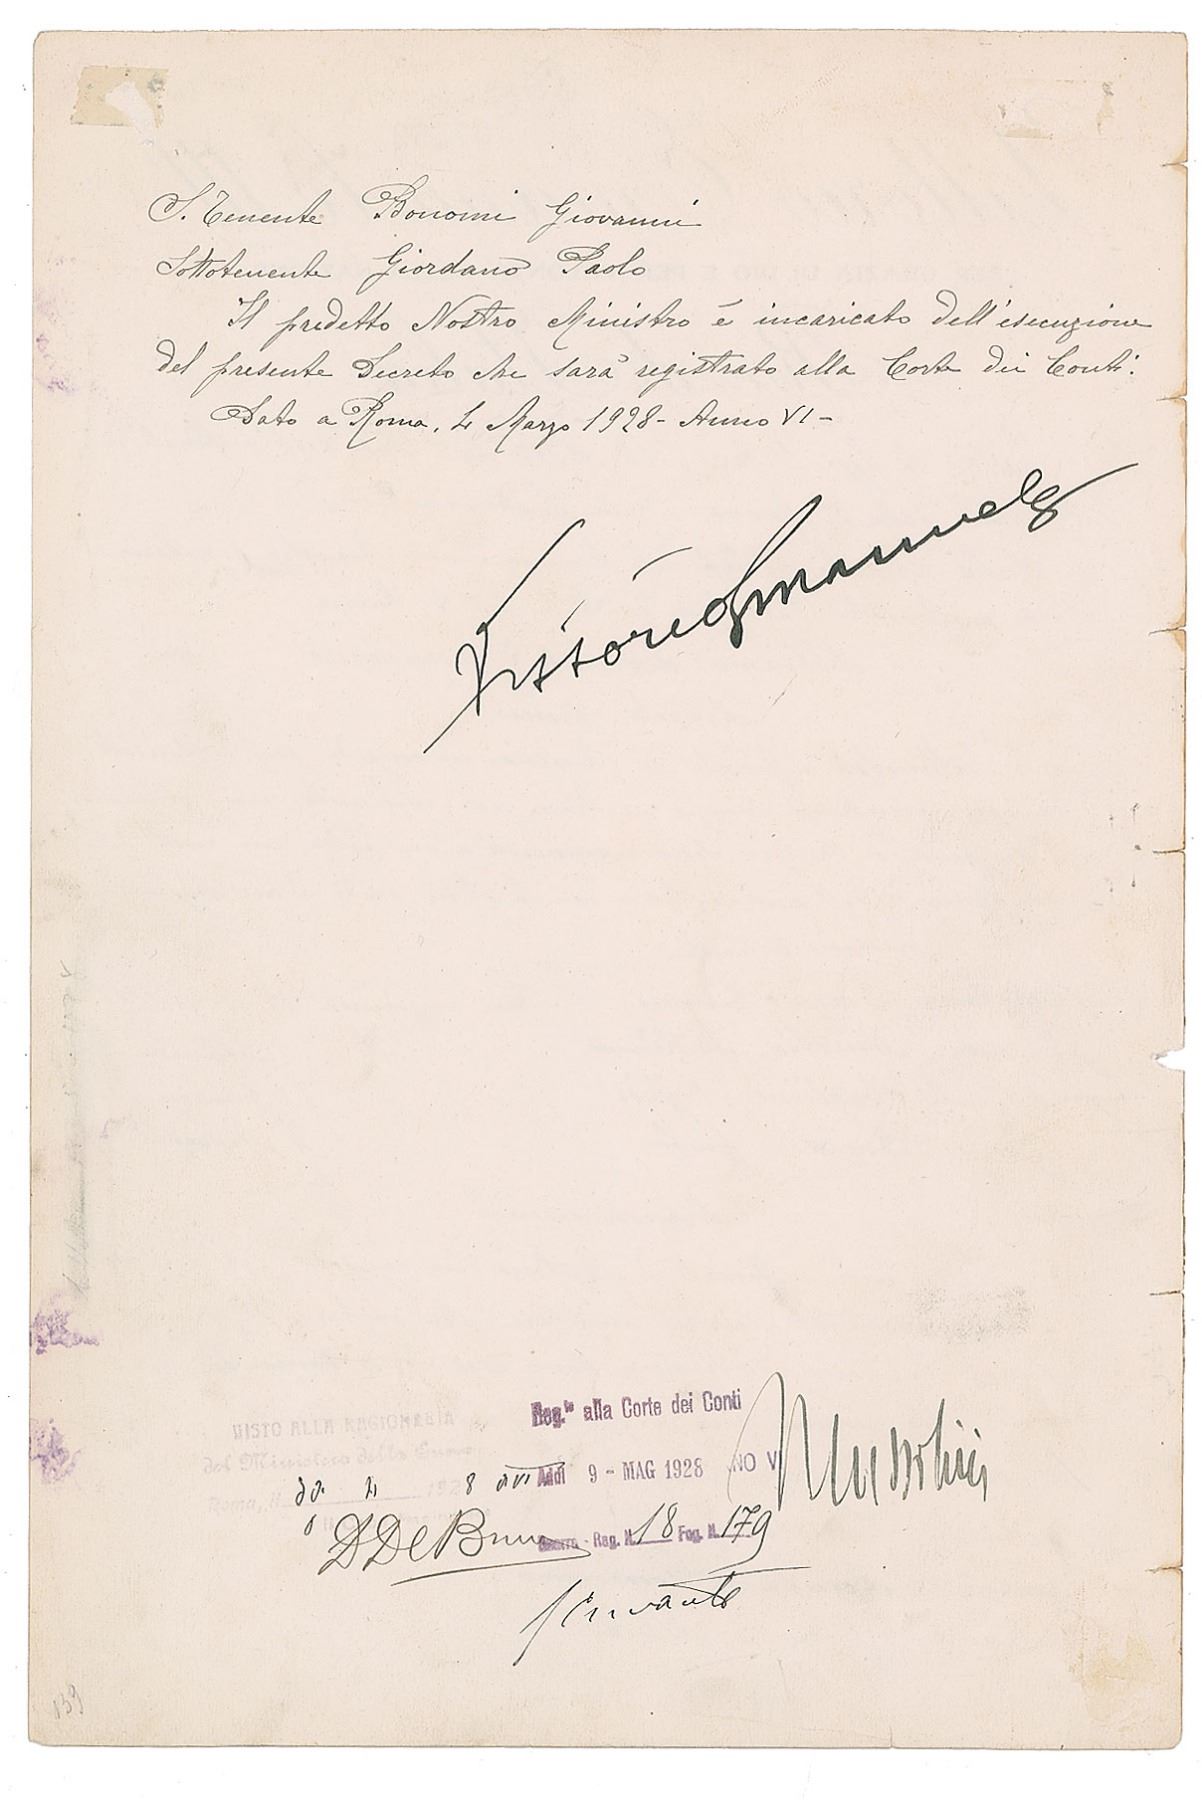 S. Tenente Bonomi Giovanni
Sottotenente Giordano Paolo
Il predetto Nostro Ministro è incaricato dell'esecuzione
del presente Decreto che sarà registrato alla Corte dei Conti.
Dato a Roma, 4 Marzo 1928 - Anno VI -
Vittorio Emanuele
Reg.to alla Corte dei Conti
VISTO ALLA RAGIONERIA
del Ministero della Guerra
Addì 9 - MAG 1928 NO VI
Mussolini
Roma, li 4 1928
Guerra - Reg. N. 18 Fog. N. 179
139